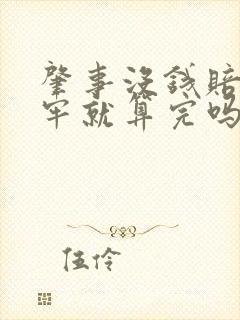 肇事没钱赔
牢就算完吗
伍伶